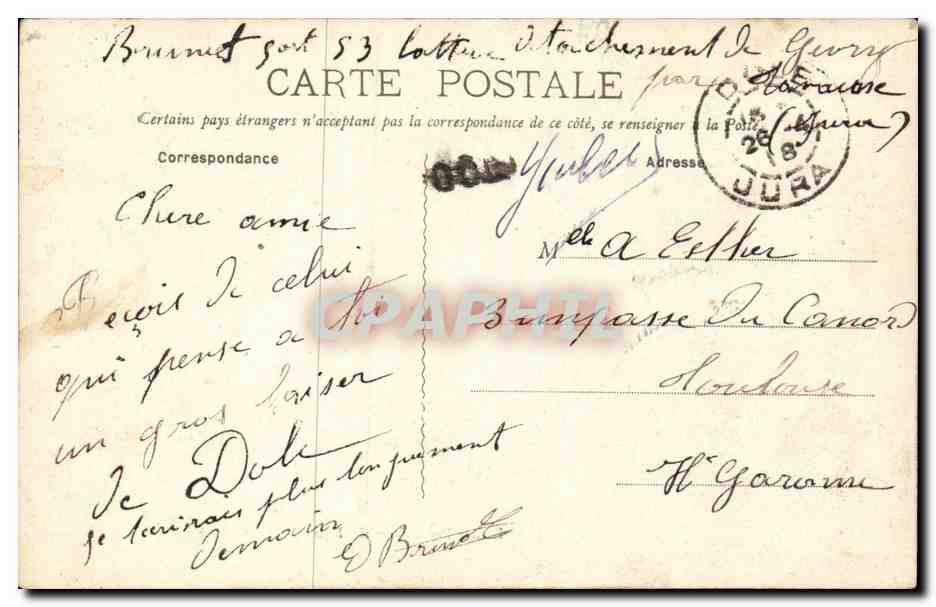 Brunet 53 détachement de Gevry
CARTE POSTALE
par Tavaux
(Jura)
Certains pays étrangers n'acceptant pas la correspondance de ce côté, se renseigner à la Poste
Correspondance
Adresse
DOLE
26
8
JURA
Chere amie
Reçois de celui
qui pense a toi
un gros baiser
de Dole
je t'ecrirais plus longument
demain
E Brunet
Melle A Esther
3 impasse du Canard
Toulouse
Hte Garonne
CPAPHIL